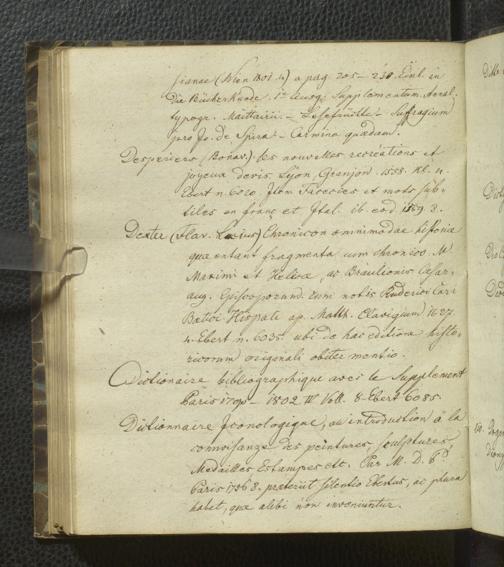 (Wien 1801. 4) a pag. 205–230. Einl. in
die Bücherkunde. 1te Ausg. Supplementum Annal.
typogr. Maittairii – Lesefrüchte – Suffragium
pro Jo. de Spira – Carmina quaedam.
Desperiers (Bonav.) les nouvelles recreations et
joyeux devis Lyon, Granjon. 1558. kl. 4.
Ebert n. 6020. Item Faceties et mots sub-
tiles en franc. et Ital. ib. eod. 1559. 8.
Dexter (Flav. Lucius) Chronicon omnimodae historiae
quae extant fragmenta cum chronico M.
Maximi et Helecae, ac Braulionis Caesar-
aug. Episcoporum. cum notis Ruderici Cari
Baetici Hispali ap. Matth. Clavigium 1627.
4. Ebert n. 6035. ubi de hac editione histo-
ricorum originali obiter mentio.
Dictionaire bibliographique avec le Supplement
Paris 1790–1802 IV Voll. 8. Ebert 6085.
Dictionnaire Iconologique, ou introduction à la
connoisance des peintures, sculptures,
Medailles Estampes etc. Par M. D. P.
Paris 1768. praeterit silentio Ebertus, ac plura
habet, quae alibi non inveniuntur.